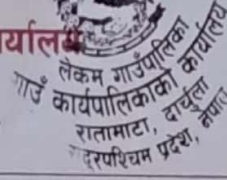 र्यालय
लेकम गाउँपालिका
गाउँ कार्यपालिकाको कार्यालय
रातामाटा, दार्चुला
सुदूरपश्चिम प्रदेश, नेपाल